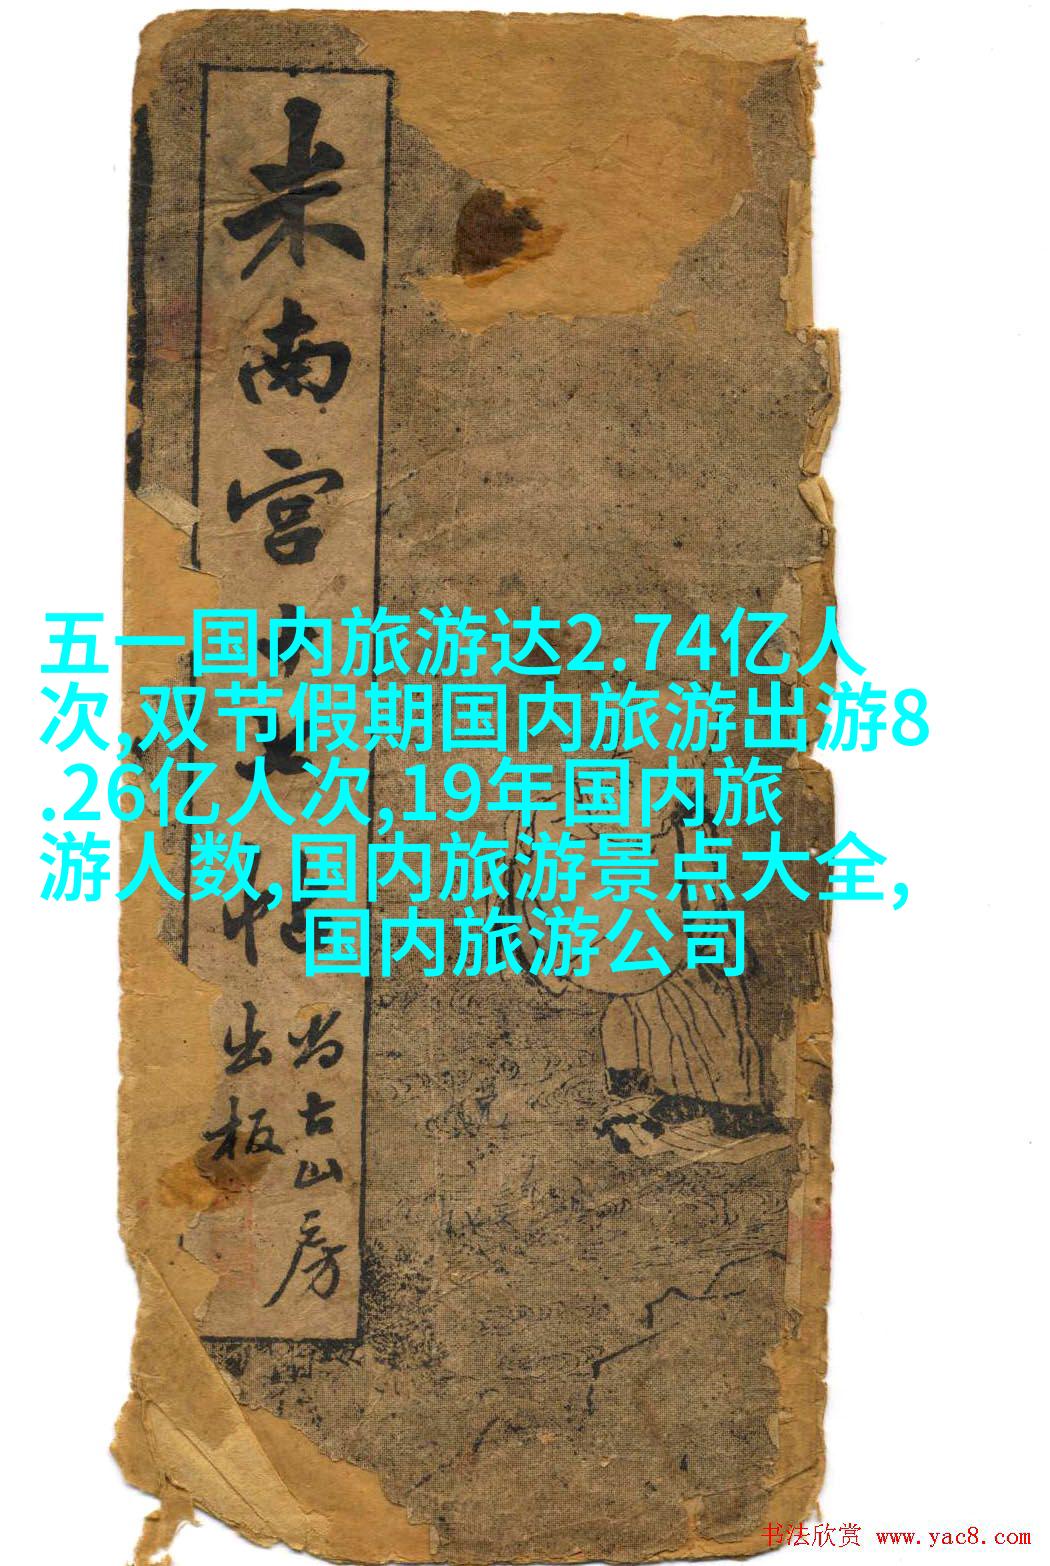 五一国内旅游达2.74亿人
次,双节假期国内旅游出游8
.26亿人次,19年国内旅
游人数,国内旅游景点大全,
国内旅游公司
米南宫
帖
尚古山房
出板
书法欣赏 www.yac8.com